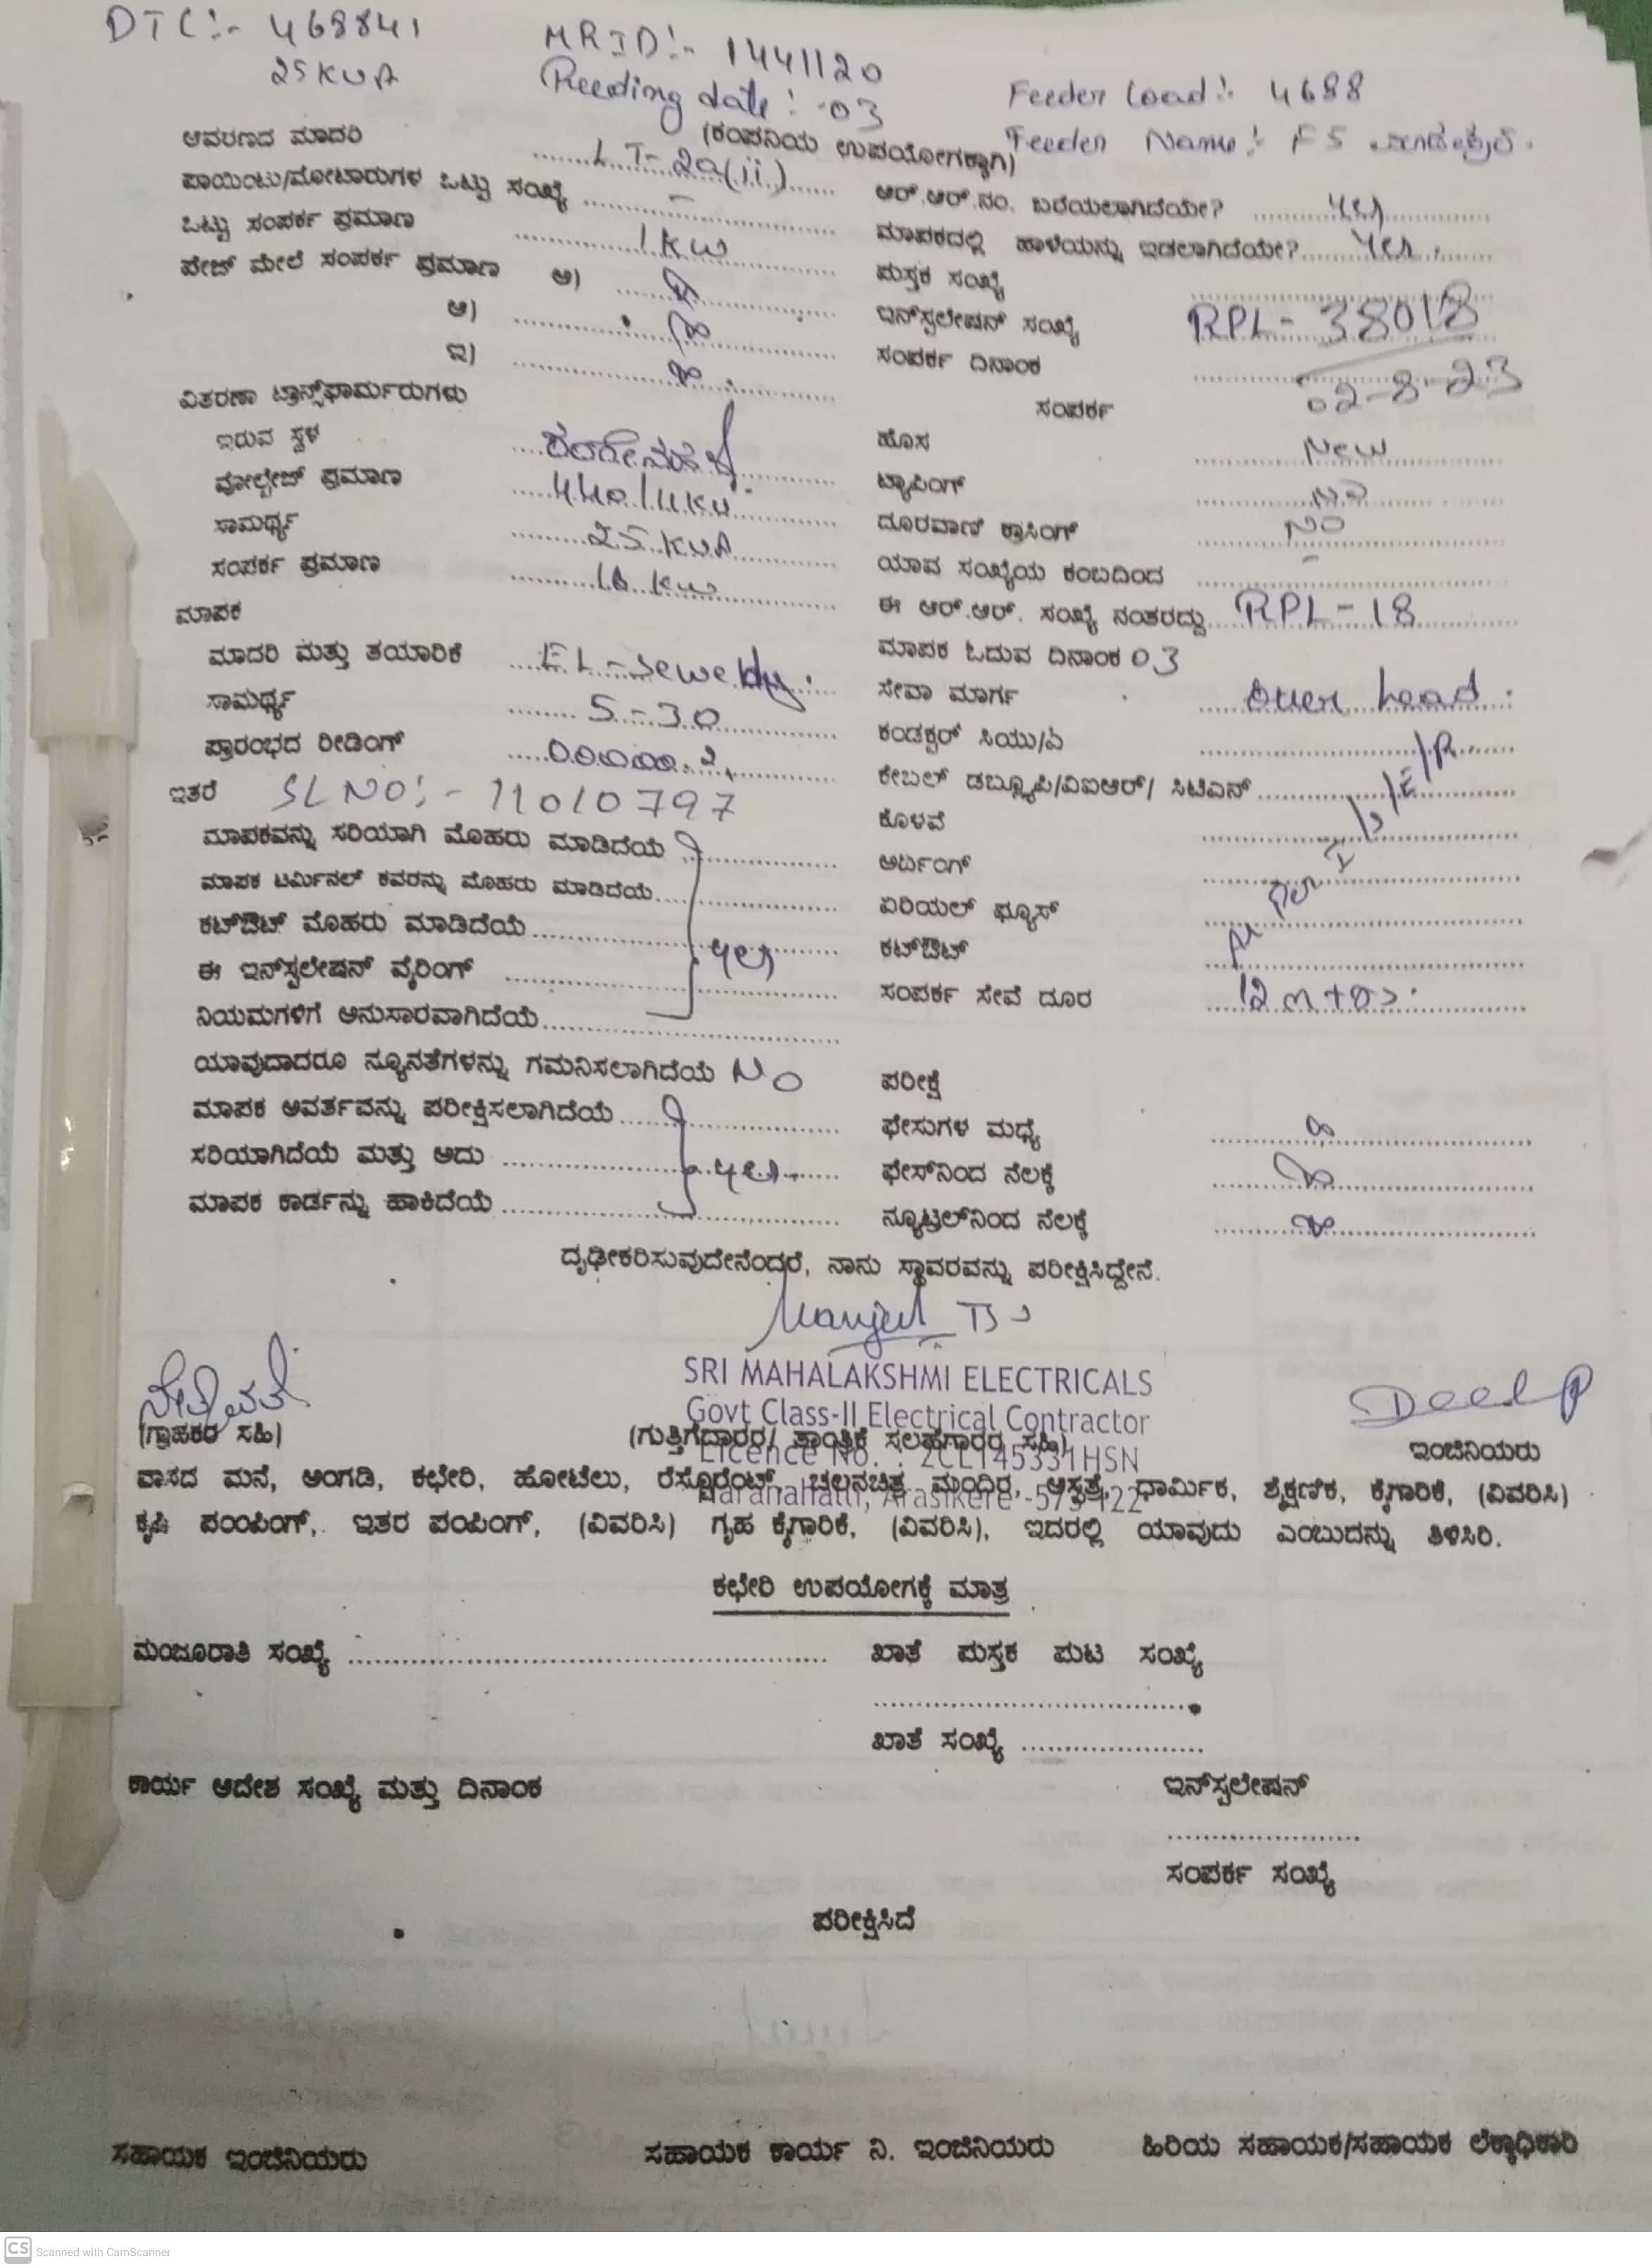 DTC:- 468841
25 KVA
MRID:- 1441120
Reeding date:- 03
Feeder Load:- 4688
Feeder Name:- F5
(ಕಂಪನಿಯ ಉಪಯೋಗಕ್ಕಾಗಿ)
ಆವರಣದ ಮಾದರಿ LT-2a(ii)
ಪಾಯಿಂಟು/ಮೋಟಾರುಗಳ ಒಟ್ಟು ಸಂಖ್ಯೆ -
ಒಟ್ಟು ಸಂಪರ್ಕ ಪ್ರಮಾಣ 1 KW
ಪೇಜ್ ಮೇಲೆ ಸಂಪರ್ಕ ಪ್ರಮಾಣ ಅ)
ಆ)
ಇ)
ವಿತರಣಾ ಟ್ರಾನ್ಸ್‌ಫಾರ್ಮರುಗಳು
ಇರುವ ಸ್ಥಳ
ವೋಲ್ಟೇಜ್ ಪ್ರಮಾಣ 440/11KV
ಸಾಮರ್ಥ್ಯ 25 KVA
ಸಂಪರ್ಕ ಪ್ರಮಾಣ 18 KW
ಮಾಪಕ
ಮಾದರಿ ಮತ್ತು ತಯಾರಿಕೆ
ಸಾಮರ್ಥ್ಯ 5-30
ಪ್ರಾರಂಭದ ರೀಡಿಂಗ್ 00000.2
ಇತರೆ SL NO:- 11010797
ಮಾಪಕವನ್ನು ಸರಿಯಾಗಿ ಮೊಹರು ಮಾಡಿದೆಯೆ
ಮಾಪಕ ಟರ್ಮಿನಲ್ ಕವರನ್ನು ಮೊಹರು ಮಾಡಿದೆಯೆ
ಕಟ್‌ಔಟ್ ಮೊಹರು ಮಾಡಿದೆಯೆ yes
ಈ ಇನ್‌ಸ್ಟಲೇಷನ್ ವೈರಿಂಗ್
ನಿಯಮಗಳಿಗೆ ಅನುಸಾರವಾಗಿದೆಯೆ
ಯಾವುದಾದರೂ ನ್ಯೂನತೆಗಳನ್ನು ಗಮನಿಸಲಾಗಿದೆಯೆ No
ಮಾಪಕ ಆವರ್ತವನ್ನು ಪರೀಕ್ಷಿಸಲಾಗಿದೆಯೆ
ಸರಿಯಾಗಿದೆಯೆ ಮತ್ತು ಅದು yes
ಮಾಪಕ ಕಾರ್ಡನ್ನು ಹಾಕಿದೆಯೆ
ಆರ್.ಆರ್.ನಂ. ಬರೆಯಲಾಗಿದೆಯೇ? yes
ಮಾಪಕದಲ್ಲಿ ಹಾಳೆಯನ್ನು ಇಡಲಾಗಿದೆಯೇ? Yes.
ಪುಸ್ತಕ ಸಂಖ್ಯೆ
ಇನ್‌ಸ್ಟಲೇಷನ್ ಸಂಖ್ಯೆ RPL-38018
ಸಂಪರ್ಕ ದಿನಾಂಕ 02-8-23
ಸಂಪರ್ಕ
ಹೊಸ New
ಟ್ಯಾಪಿಂಗ್ NO
ದೂರವಾಣಿ ಕ್ರಾಸಿಂಗ್ NO
ಯಾವ ಸಂಖ್ಯೆಯ ಕಂಬದಿಂದ -
ಈ ಆರ್.ಆರ್. ಸಂಖ್ಯೆ ನಂತರದ್ದು RPL-18
ಮಾಪಕ ಓದುವ ದಿನಾಂಕ 03
ಸೇವಾ ಮಾರ್ಗ Over head.
ಕಂಡಕ್ಟರ್ ಸಿಯು/ಎ
ಕೇಬಲ್ ಡಬ್ಲ್ಯೂಪಿ/ವಿಐಆರ್/ ಸಿಟಿಎಸ್
ಕೊಳವೆ
ಅರ್ದಿಂಗ್
ಏರಿಯಲ್ ಫ್ಯೂಸ್
ಕಟ್‌ಔಟ್
ಸಂಪರ್ಕ ಸೇವೆ ದೂರ 12 mtrs.
ಪರೀಕ್ಷೆ
ಫೇಸುಗಳ ಮಧ್ಯೆ
ಫೇಸ್‌ನಿಂದ ನೆಲಕ್ಕೆ
ನ್ಯೂಟ್ರಲ್‌ನಿಂದ ನೆಲಕ್ಕೆ
ದೃಢೀಕರಿಸುವುದೇನೆಂದರೆ, ನಾನು ಸ್ಥಾವರವನ್ನು ಪರೀಕ್ಷಿಸಿದ್ದೇನೆ.
SRI MAHALAKSHMI ELECTRICALS
Govt Class-II Electrical Contractor
Licence No. : 2CL145331HSN
Haranahalli, Arasikere -573122
(ಗ್ರಾಹಕರ ಸಹಿ)
(ಗುತ್ತಿಗೆದಾರರ/ ತಾಂತ್ರಿಕ ಸಲಹಗಾರರ ಸಹಿ)
ಇಂಜಿನಿಯರು
ವಾಸದ ಮನೆ, ಅಂಗಡಿ, ಕಛೇರಿ, ಹೋಟೆಲು, ರೆಸ್ಟೊರೆಂಟ್, ಚಲನಚಿತ್ರ ಮಂದಿರ, ಆಸ್ಪತ್ರೆ, ಧಾರ್ಮಿಕ, ಶೈಕ್ಷಣಿಕ, ಕೈಗಾರಿಕೆ, (ವಿವರಿಸಿ)
ಕೃಷಿ ಪಂಂಪಿಂಗ್, ಇತರ ಪಂಪಿಂಗ್, (ವಿವರಿಸಿ) ಗೃಹ ಕೈಗಾರಿಕೆ, (ವಿವರಿಸಿ), ಇದರಲ್ಲಿ ಯಾವುದು ಎಂಬುದನ್ನು ತಿಳಿಸಿರಿ.
ಕಛೇರಿ ಉಪಯೋಗಕ್ಕೆ ಮಾತ್ರ
ಮಂಜೂರಾತಿ ಸಂಖ್ಯೆ
ಖಾತೆ ಪುಸ್ತಕ ಪುಟ ಸಂಖ್ಯೆ
ಖಾತೆ ಸಂಖ್ಯೆ
ಕಾರ್ಯ ಆದೇಶ ಸಂಖ್ಯೆ ಮತ್ತು ದಿನಾಂಕ
ಇನ್‌ಸ್ಟಲೇಷನ್
ಸಂಪರ್ಕ ಸಂಖ್ಯೆ
ಪರೀಕ್ಷಿಸಿದೆ
ಸಹಾಯಕ ಇಂಜಿನಿಯರು
ಸಹಾಯಕ ಕಾರ್ಯ ನಿ. ಇಂಜಿನಿಯರು
ಹಿರಿಯ ಸಹಾಯಕ/ಸಹಾಯಕ ಲೆಕ್ಕಾಧಿಕಾರಿ
CS Scanned with CamScanner